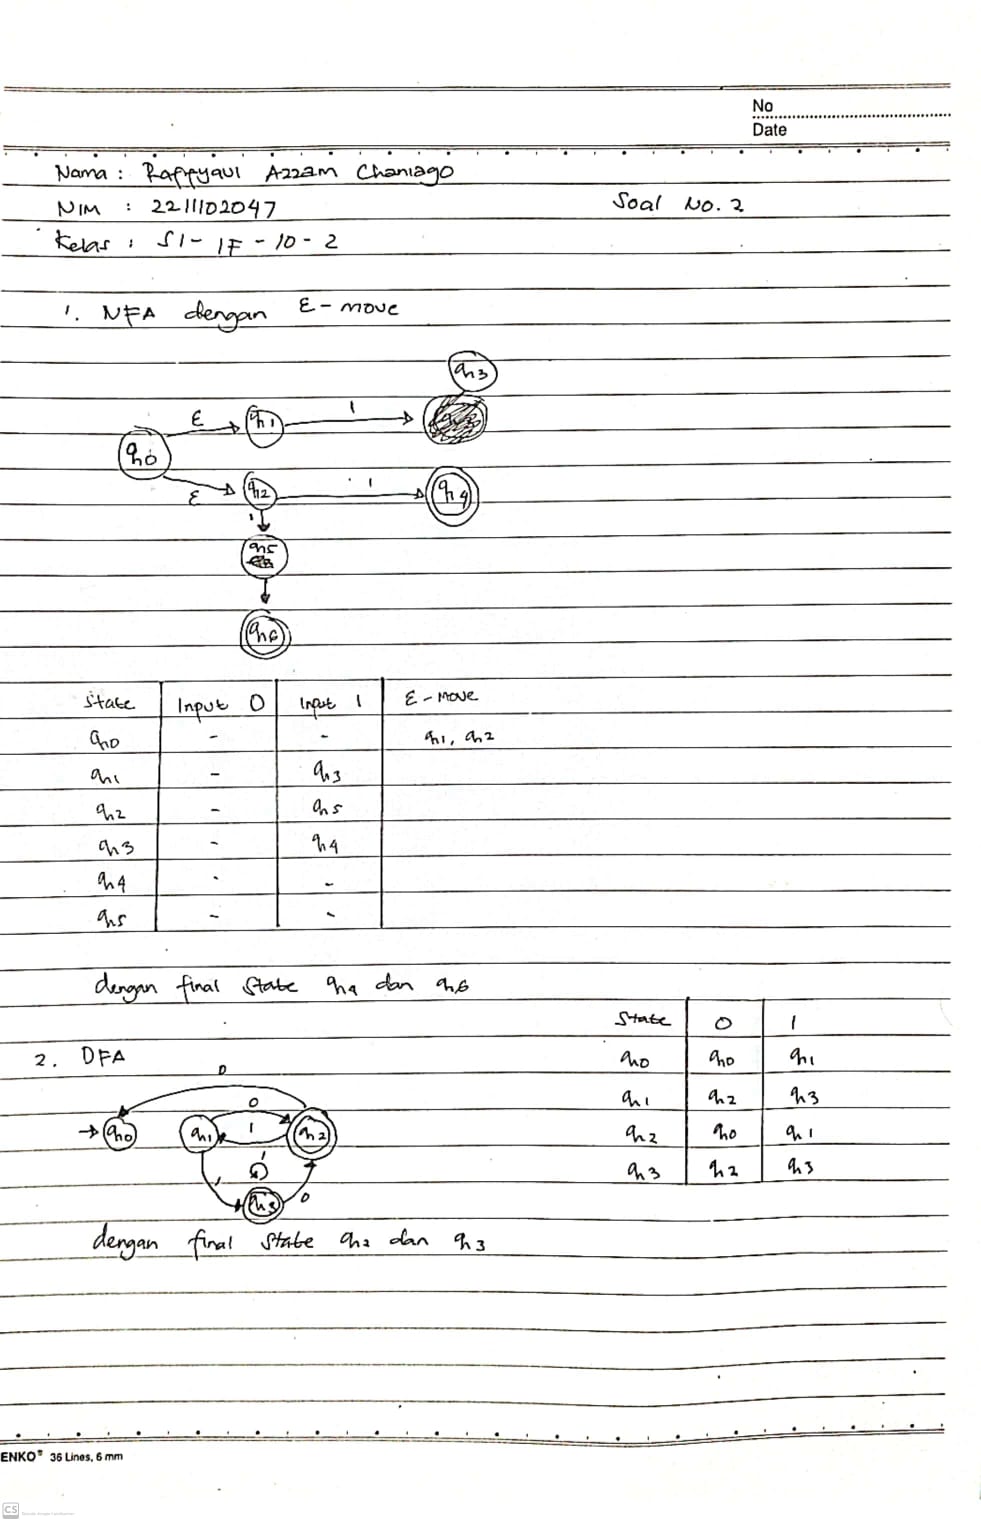 No
Date
Nama : Raffyaul Azzam Chaniago
NIM : 2211102047
Soal No. 2
Kelas : S1 - IF - 10 - 2
1. NFA dengan ε - move
q3
ε q1 1
q0
ε q2 1 q4
1
q5
q6
State Input 0 Input 1 ε - move
q0 - - q1, q2
q1 - q3
q2 - q5
q3 - q4
q4 - -
q5 - -
dengan final state q4 dan q6
2. DFA
0
0
q0 q1 1 q2
1
1 q3 0
State 0 1
q0 q0 q1
q1 q2 q3
q2 q0 q1
q3 q2 q3
dengan final state q2 dan q3
ENKO® 36 Lines, 6 mm
CS